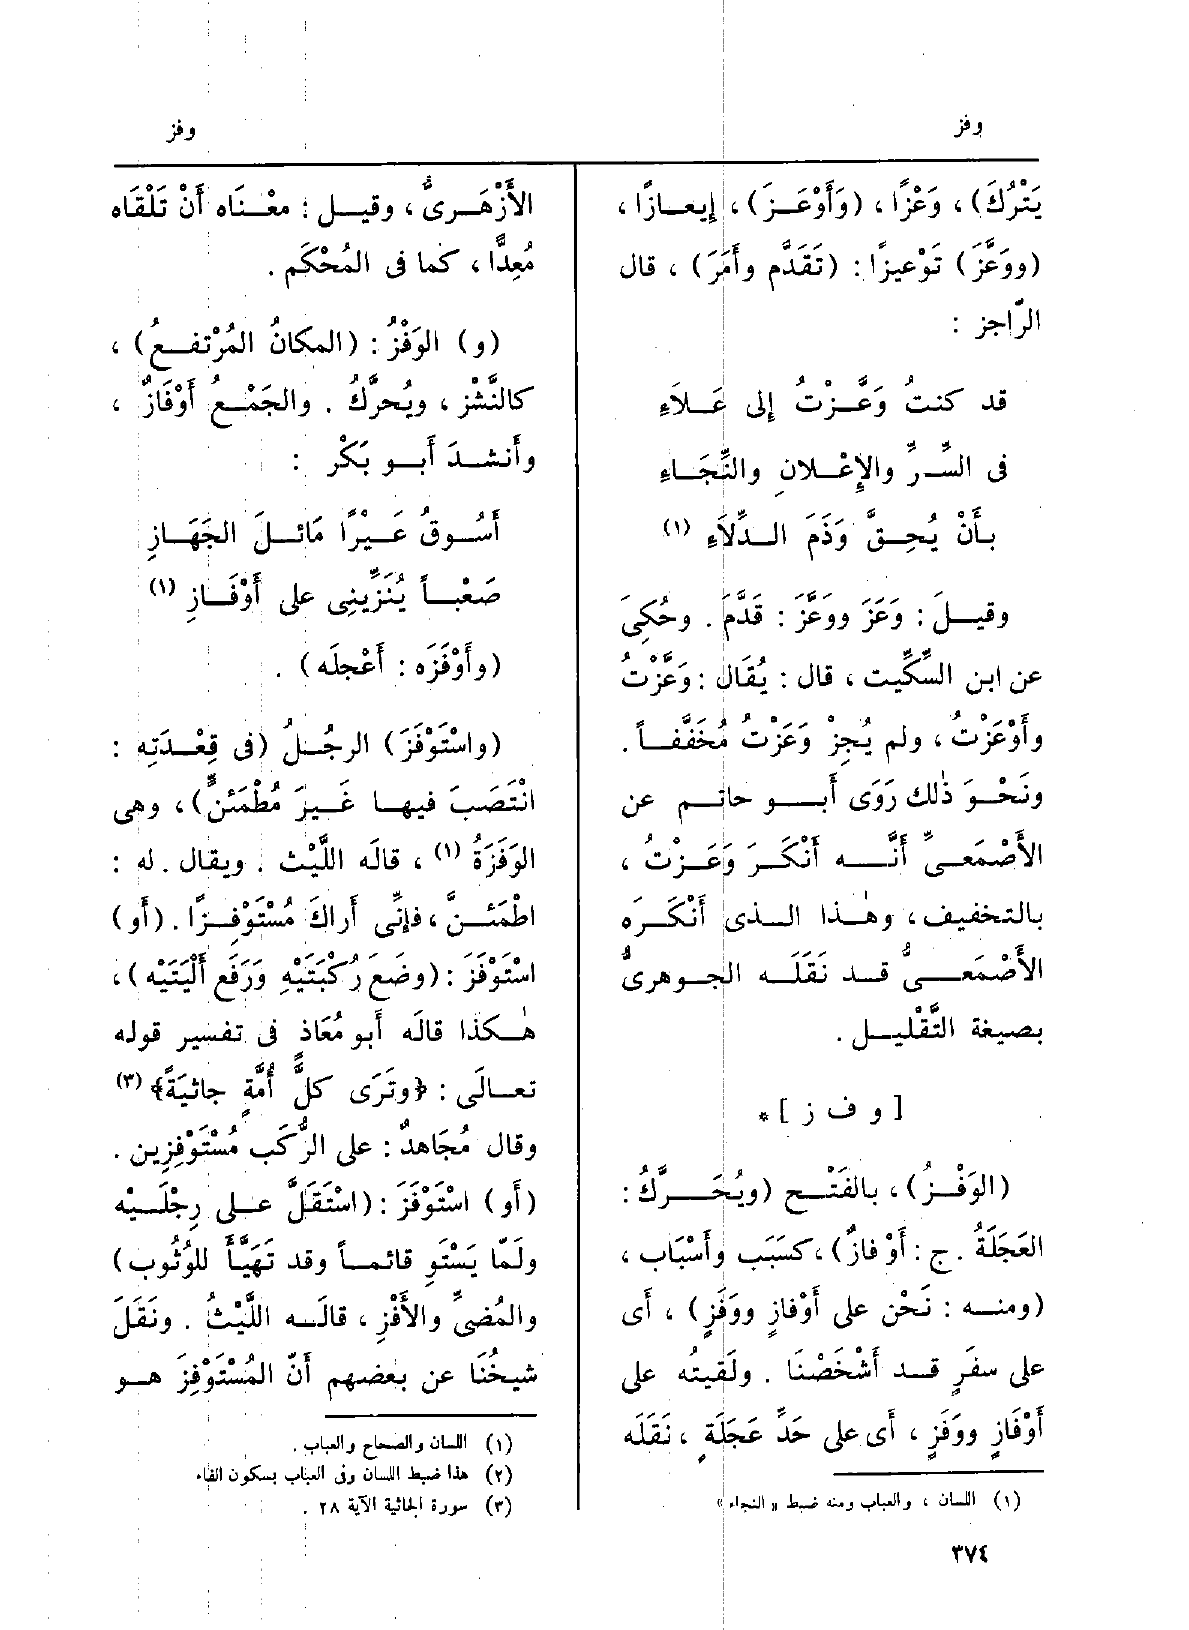 وفز
وفز
يَتْرُكَ) ، وَعْزًا ، (وَأَوْعَـزَ) ، إيعـازًا ،
(ووَعَّزَ) تَوْعيزًا : (تَقَدَّم وأَمَرَ) ، قال
الرّاجز :
قد كنتُ وَعَّـزْتُ إلى عَـلاَءِ
فى السِّرِّ والإِعْـلانِ والنَّجَـاءِ
بـأَنْ يُحِـقَّ وَذَمَ الـدِّلاَءِ (١)
وقيـلَ : وَعَزَ ووَعَّزَ : قَدَّمَ . وحُكِىَ
عن ابن السِّكِّيت ، قال : يُقَال : وَعَّزْتُ
وأَوْعَزْتُ ، ولم يُجِزْ وَعَزْتُ مُخَفَّفـاً .
ونَحْـوَ ذٰلك رَوَى أَبـو حاتـم عن
الأَصْمَعـىِّ أَنَّـه أَنْكَـرَ وَعَـزْتُ ،
بالتخفيف ، وهٰـذا الـذى أَنْكَـرَه
الأَصْمَعـىُّ قـد نَقَلَـه الجـوهرىُّ
بصيغة التَّقْليـل .
[ و ف ز ] *
(الوَفْـزُ) ، بالفَتْـح (ويُحَـرَّكُ :
العَجَلَةُ . ج : أَوْفازٌ) ، كسَبَب وأَسْبَاب ،
(ومنـه : نَحْن على أَوْفازٍ ووَفَزٍ) ، أى
على سفَرٍ قـد أَشْخَصْنَا . ولَقيتُه على
أَوْفَازٍ ووَفَزٍ ، أى على حَدِّ عَجَلَةٍ ، نَقَلَه
(١) اللسان ، والعباب ومنه ضبط « النجاء »
الأَزْهَـرىُّ ، وقيـل : معْنـاه أَنْ تَلْقَاه
مُعِدًّا ، كما فى المُحْكَم .
(و) الوَفْزُ : (المكانُ المُرْتفـعُ) ،
كالنَّشْز ، ويُحرَّكُ . والجَمْـعُ أَوْفَازٌ ،
وأَنشـدَ أَبـو بَكْر :
أَسُـوقُ عَـيْرًا مَائـلَ الجَهَـازِ
صَعْبـاً يُنَزِّينِى على أَوْفَـازِ (١)
(وأَوْفَزَه : أَعْجلَه) .
(واسْتَوْفَزَ) الرجُـلُ (فى قِعْـدَتِه :
انْتَصَبَ فيهـا غَيـرَ مُطْمَئنٍّ) ، وهى
الوَفَزَةُ (١) ، قالَه اللَّيْث . ويقال . له :
اطْمَئـنَّ ، فإنِّى أَراكَ مُسْتَوْفـزًا . (أو)
اسْتَوْفَزَ : (وضَع رُكْبَتَيْهِ ورَفَع أَلْيَتَيْه) ،
هٰـكذا قالَه أَبو مُعَاذ فى تفسير قوله
تعـالَى : ﴿وتَرَى كلَّ أُمَّةٍ جاثيَةً﴾ (٣)
وقال مُجَاهدٌ : على الرُّكَب مُسْتَوْفِزِين .
(أو) اسْتَوْفَزَ : (اسْتَقَلَّ علـى رِجْلَـيْه
ولَمّا يَسْتَوِ قائمـاً وقد تَهَيَّأَ للوُثُوب)
والمُضىِّ والأَفْزِ ، قالَـه اللَّيْـثُ . ونَقَلَ
شيخُنَا عن بعضهم أَنّ المُسْتَوْفِزَ هـو
(١) اللسان والصحاح والعباب .
(٢) هذا ضبط اللسان وفى العباب بسكون الفاء
(٣) سورة الجاثية الآية ٢٨ .
٣٧٤